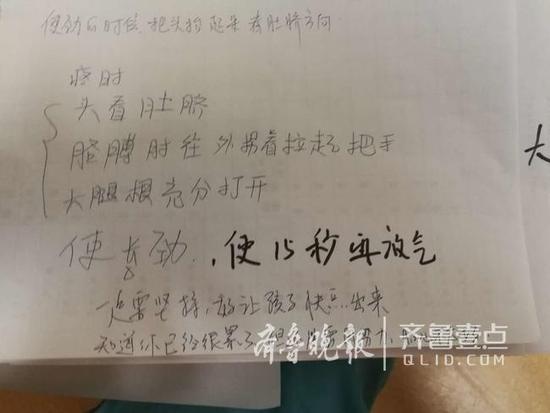 使劲的时候,把头抬起来看肚脐方向.
疼时
头看肚脐
胳膊肘往外拐着拉起把手
大腿根充分打开
使长劲.,使15秒再放气
一定要坚持,好让孩子快点出来
知道你已经很累了
齐鲁晚报 齐鲁壹点
QLID.COM
大